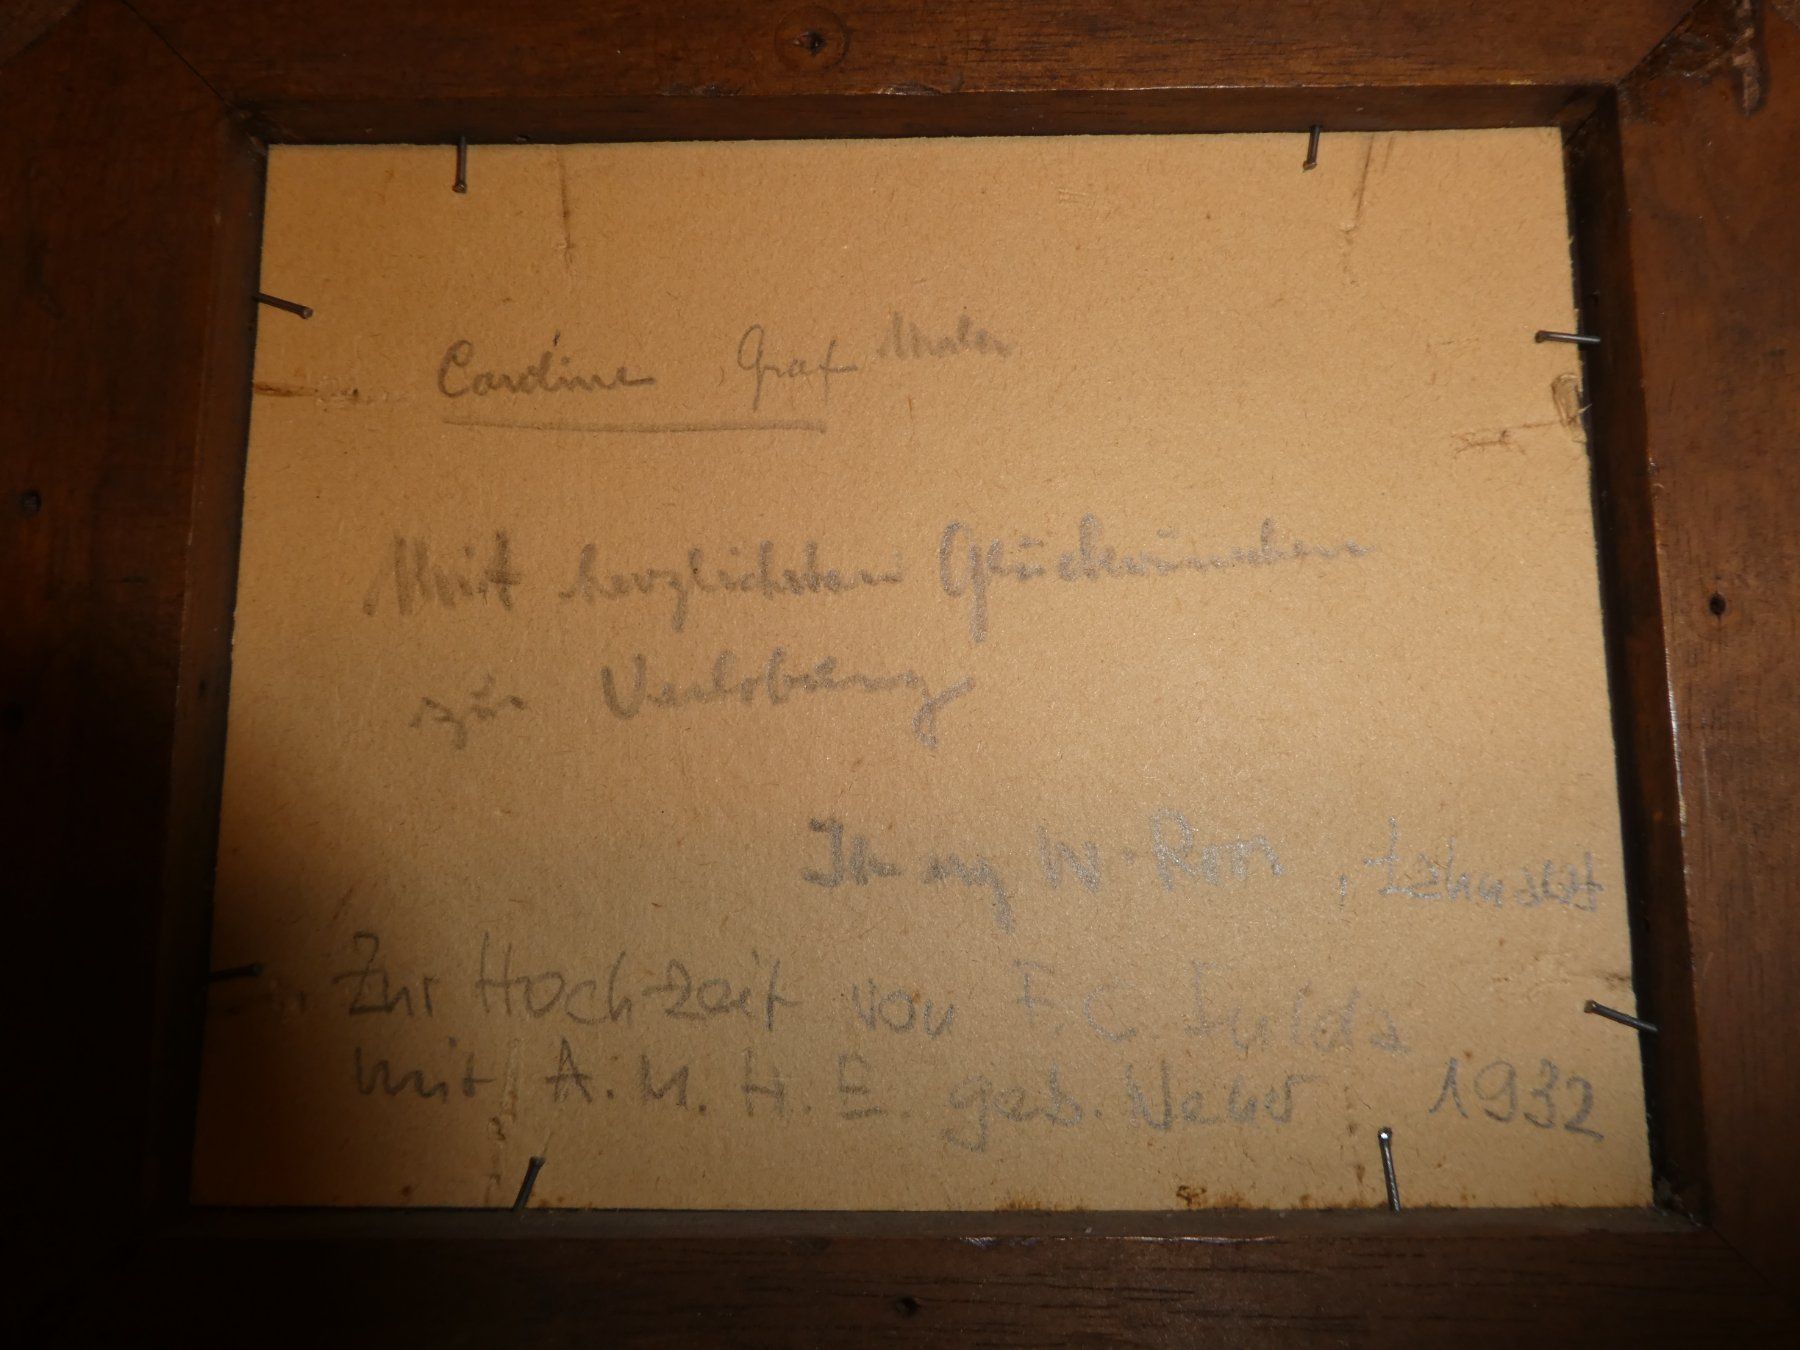 Caroline Graf Maler
Mit herzlichsten Glückwünschen
zur Verlobung
W. Roos, Lahnstr
Zur Hochzeit von F. C. Fulda
mit A. M. H. E. geb. 1932